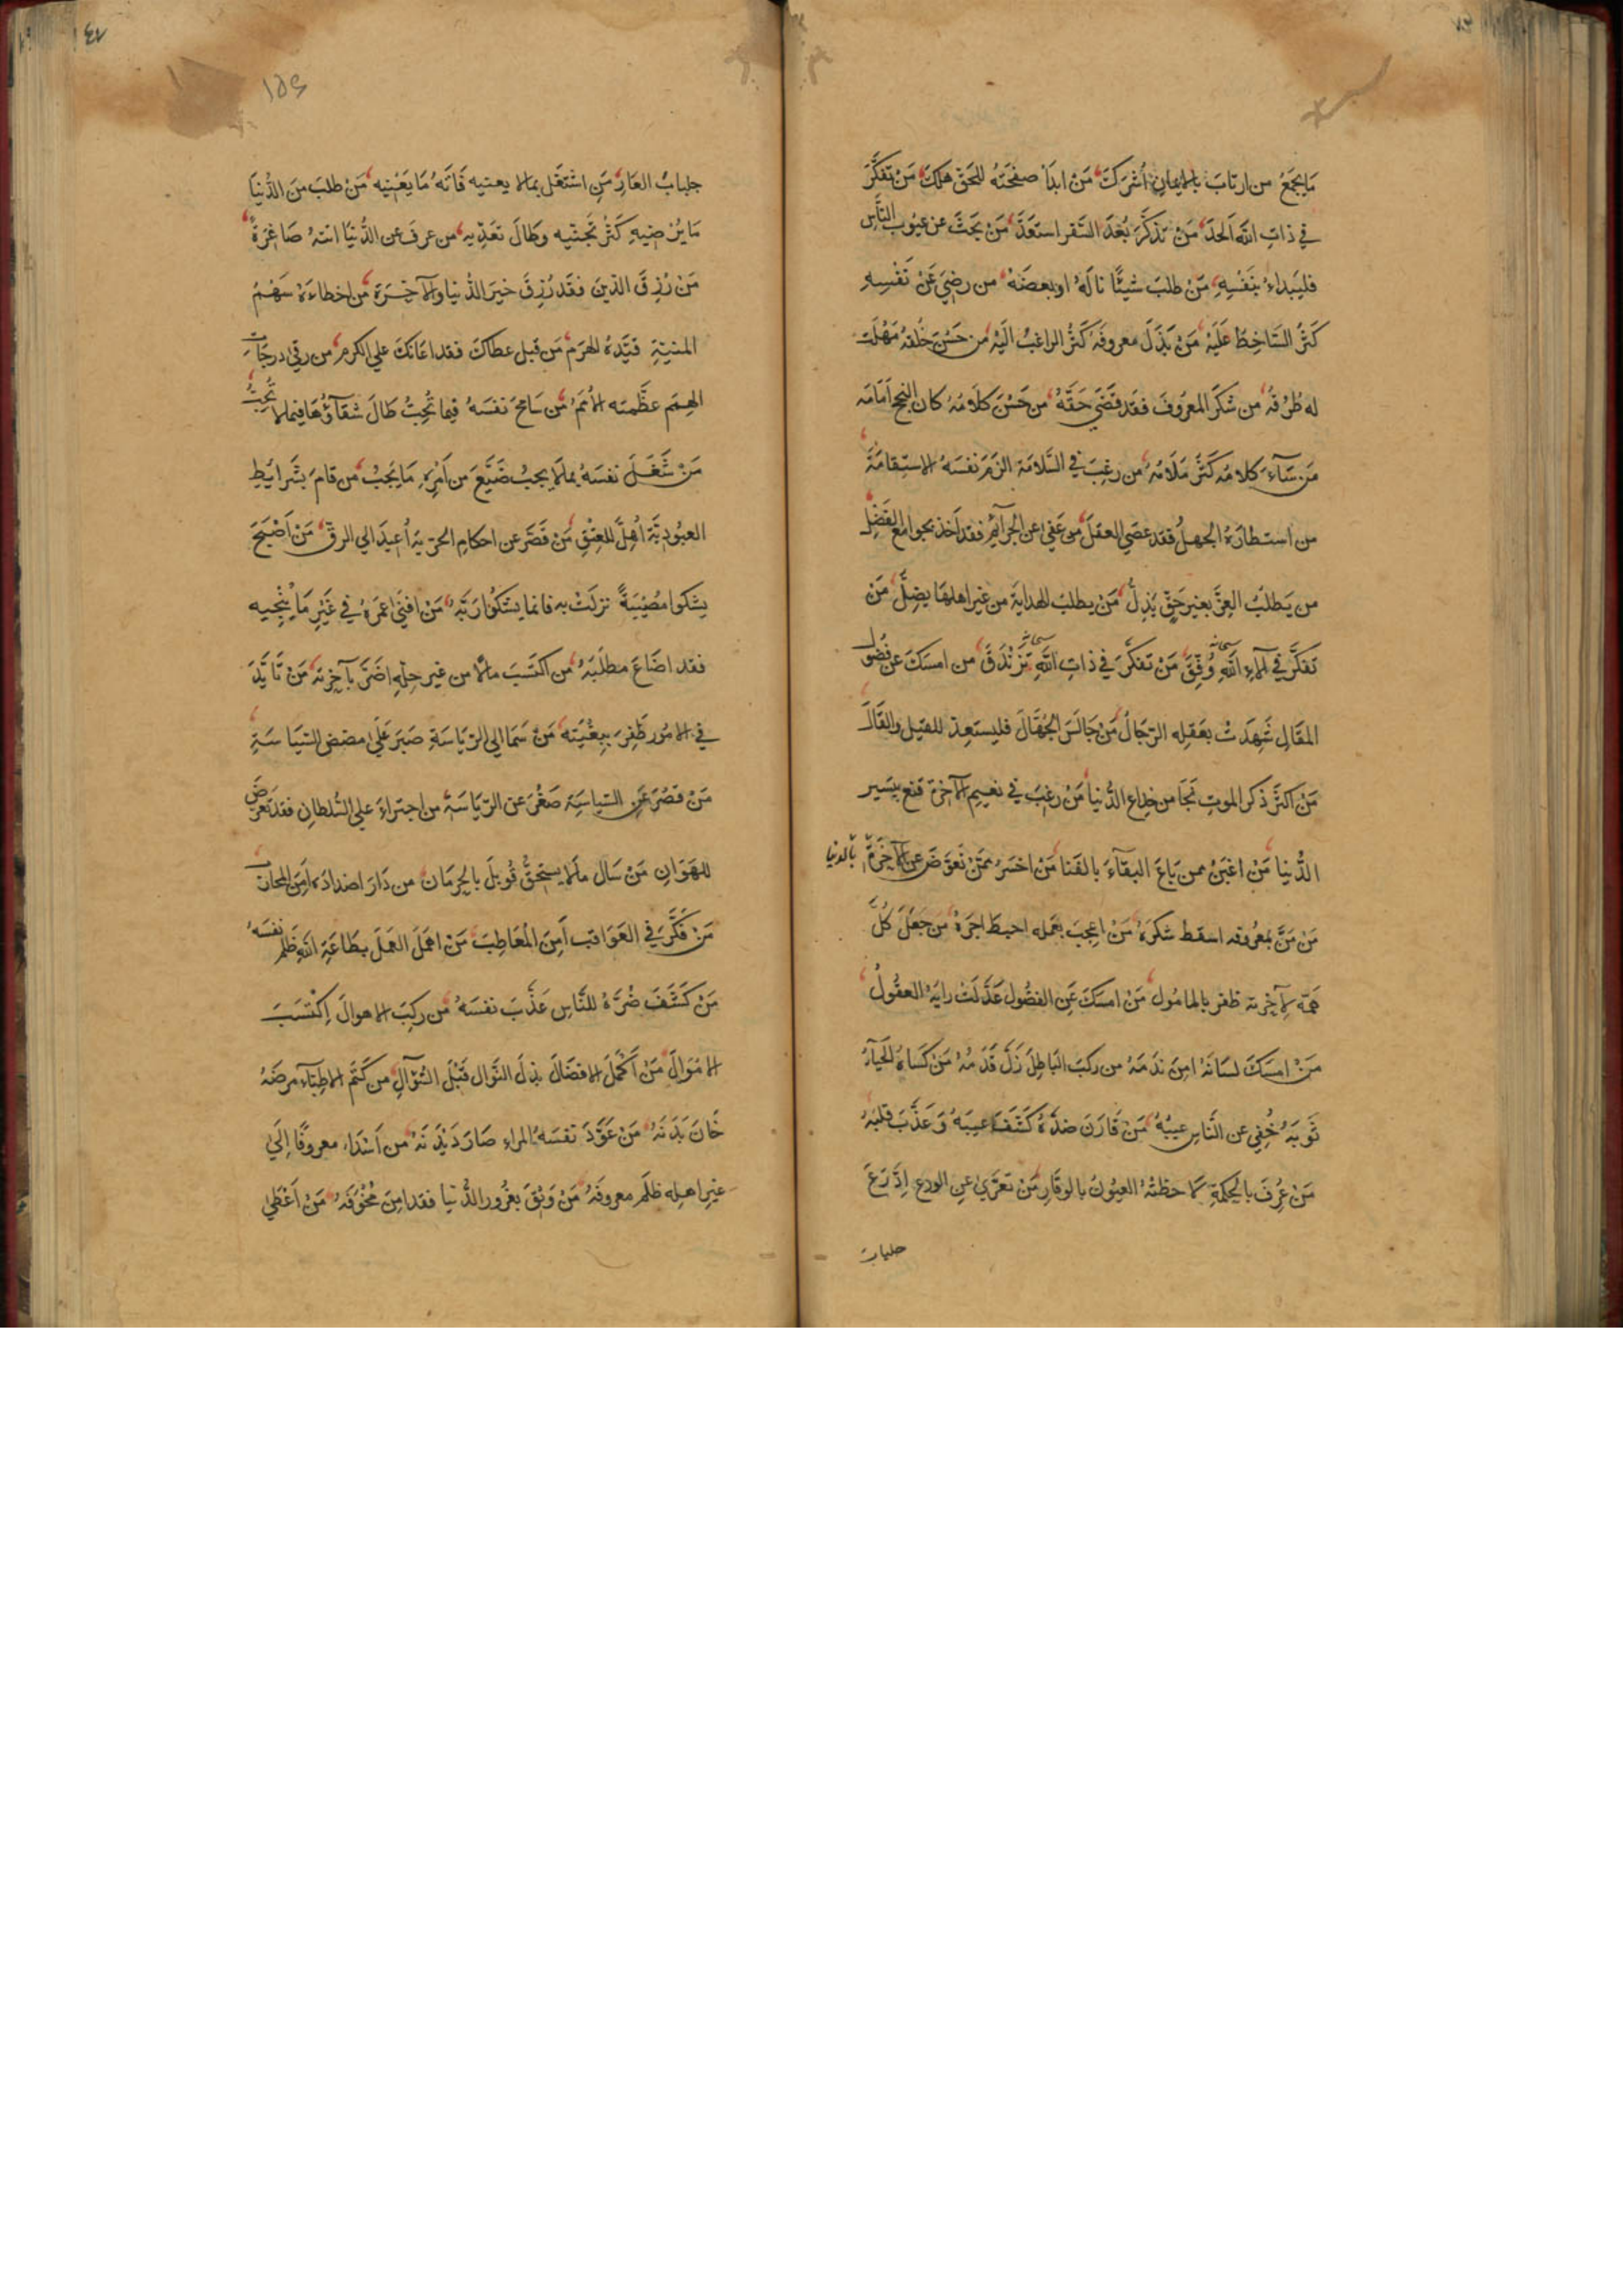 ما يجمع من ارتاب بالايمان أشرك مَنْ ابدأ صفحته للحق هلك مَنْ تفكّر
في ذات الله اَلحدَ مَنْ تذكّر بُعدَ السّفر استعدّ مَنْ بحث عن عيوب النّاس
فليبداء بنفسِهِ مَنْ طلبَ شيئًا ناله او بعضَهُ من رضِيَ عَنْ نَفْسِهِ
كثُر السّاخِطُ عَلَيْهِ مَنْ بَذَلَ معروفَهُ كَثُرَ الراغبُ اليْهِ من حَسُنَ خُلقهُ سَهُلَت
له طُرُقُهُ من شكَرَ المعرُوفَ فقد قضَى حَقَّهُ من حَسُنَ كلامُهُ كان النجح اَمَامَه
مَن سَآءَ كلامُه كَثُرَ مَلَامُهُ من رغِبَ في السَّلامَة الزَمَ نفسَهُ الاستِقامَةَ
من استطارَهُ الجهلُ فقد عصَي العقلَ من عَفي عن الجرآئم فقد اَخذ بجوامع الفَضْلِ
من يَطلبُ العِزَّ بغير حَقٍّ يَذِلُّ مَنْ يطلبُ الهدايَةَ من غير اهلهَا يضِلَّ مَن
تفكَّرَ في آلاءِ اللَّهِ سبحانه وُفِّقَ مَنْ تفكّرَ في ذاتِ اللَّهِ سبحانه تزَنْدَقَ من امسَكَ عن فُضُول
المقَالِ شَهِدَتْ بعَقلِه الرّجَالُ مَنْ جَالَسَ الجُهّالَ فليستَعِدّ للقيل والقَالَ
مَنْ اكثَرَ ذكر الموتِ نجَا من خِدَاعِ الدُّنيا مَنْ رغِبَ في نعيم الآخرة قنع بيَسير
الدُّنيا مَنْ اغبَنُ ممن بَاعَ البقآءَ بالفَنا مَنْ اخسَرُ ممَّنْ تعوّضَ عن الآخِرَةِ بالدنيا
مَن مَنَّ بمعرُوفه اسقط شكرَهُ مَنْ اعجِبَ بعَمله احبطَ اجرَهُ مَن جَعَلَ كُلَّ
همّه لآخِرته ظفر بالمامُول مَنْ امسَكَ عَنِ الفضُول عَدَّلَتْ رايَهُ العقُولُ
مَنْ امسَكَ لسَانَهُ امِنَ نَدَمَهُ من ركبَ البَاطِلَ زَلَّ قَدَمُهُ مَنْ كسَاهُ الحَيآءُ
ثوبَهُ خُفِي عن النّاسِ عيبُهُ مَنْ قَارَن ضدَّهُ كَشَفَ عيبَهُ وَعَذّبَ قلبَهُ
مَنْ عُرِفَ بالحِكمَةِ لاحظتْهُ العيُونُ بالوقَارِ مَن تعرّي عن الورع اِدَّرَعَ
جلباب
جلبابُ العَارِ مَنِ اشتغَل بمالا يعنيه فَاتَهُ مَا يَعْنِيه مَنْ طلبَ منَ الدُّنيَا
مَا يُرْضيهِ كَثُرَ تَجنّيه وطَالَ تعَدّيهِ من عرفَ عن الدُّنيَا اتتهُ صَاغِرَةً
مَنْ رُزِقَ الدّينَ فقَد رُزِقَ خيرَ الدُّنيا والآخِرَة من اخطاءَهُ سَهْمُ
المنيّةِ قيّدَهُ الهرَم مَن قَبِل عطاكَ فقد اعَانَكَ علي الكرم من رقي درجَاتِ
الهِمَم عظّمته الأُمَمُ مَن سَامَحَ نفسَهُ فيما تُحِبُّ طالَ شقآؤُهَا فيما لا تُحِبُّ
مَنْ شَغَلَ نفسَهُ بمالَا يجبُ ضَيَّعَ من اَمْرِهِ مَا يَجبُ من قامَ بشَرائِطِ
العبُودِيَّة اُهِلَّ للعِتْقِ مَنْ قَصَّرَ عن احكامِ الحُرّيةِ اُعيدَ الي الرقّ مَنْ اَصْبَحَ
يشكوا مُصيْبَةً نزلَتْ به فانما يشكُوا رَبَّهُ مَنْ افنَي عمرَهُ في غَيْرِ مَا يُنْجيه
فقد اضَاعَ مطلَبَهُ من اكتسَبَ مالًا من غير حِلِّهِ اضَرَّ بآخِرته مَنْ تَأيَّدَ
في الامُور ظَفِرَ ببغْيَته مَنْ سَمَا الي الرّيَاسَةِ صَبَرَ عَلَي مضض السّيَاسَةِ
مَنْ قصُرَ عَنِ السّياسَة صَغُرَ عن الرّيَاسَة من اجتراءَ علي السُّلطانِ فقد تعرّضَ
للهَوَانِ مَنْ سَال مالَا يستحِقُّ قُوبلَ بالحِرمَان من دَارَ اضدادَه اَمِنَ المحارب
مَنْ فكّر في العَوَاقب اَمِنَ المعَاطِبَ مَنْ اهمَلَ العمَلَ بطَاعَةِ اللهِ ظَلَم نفسَهُ
مَنْ كَشَفَ ضُرَّهُ للنَّاسِ عَذّبَ نفسَهُ من ركِبَ الاهوالَ اِكْتَسَبَ
الامْوَالَ مَنْ اَكْمَلَ الافضَالَ بذل النَّوَال قَبْلَ السّؤالِ من كَتَم الاطِبّاءَ مرضَهُ
خَانَ بَدَنَهُ مَنْ عَوَّدَ نفسَهُ المراءِ صَارَ دَيْدَنَهُ من اَسْدَاءَ معروفًا اِلَى
غيرِ اهلِه ظلَم معروفَهُ مَنْ وَثِقَ بغُرور الدُّنيا فقد امِنَ مخُوَفَهُ مَنْ اَعْطَي